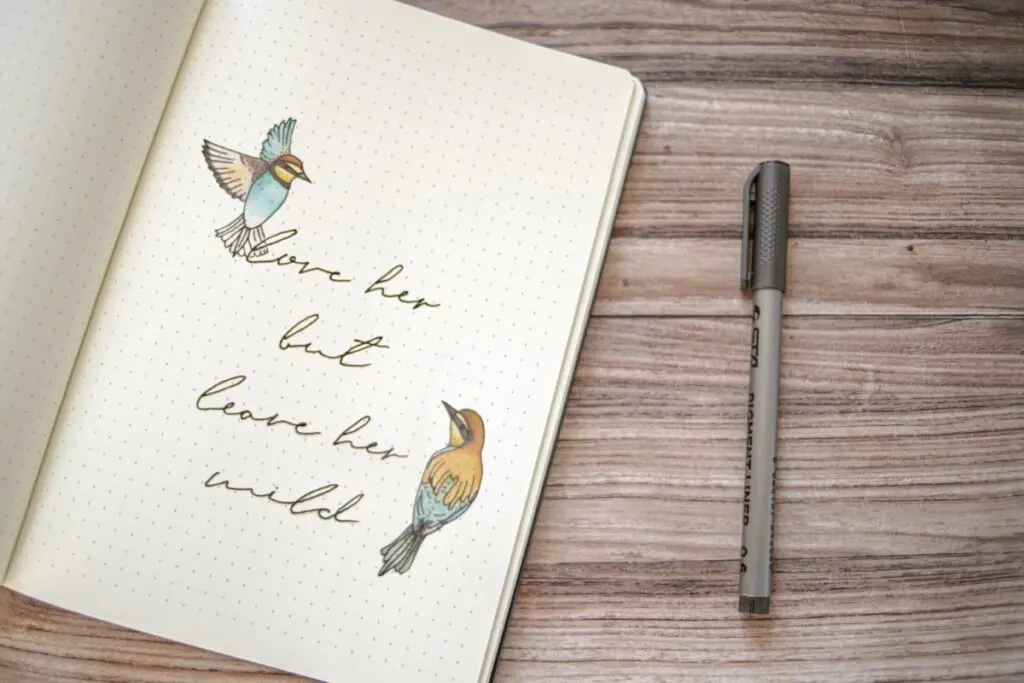 love her
but
leave her
wild
PIGMENT LINER